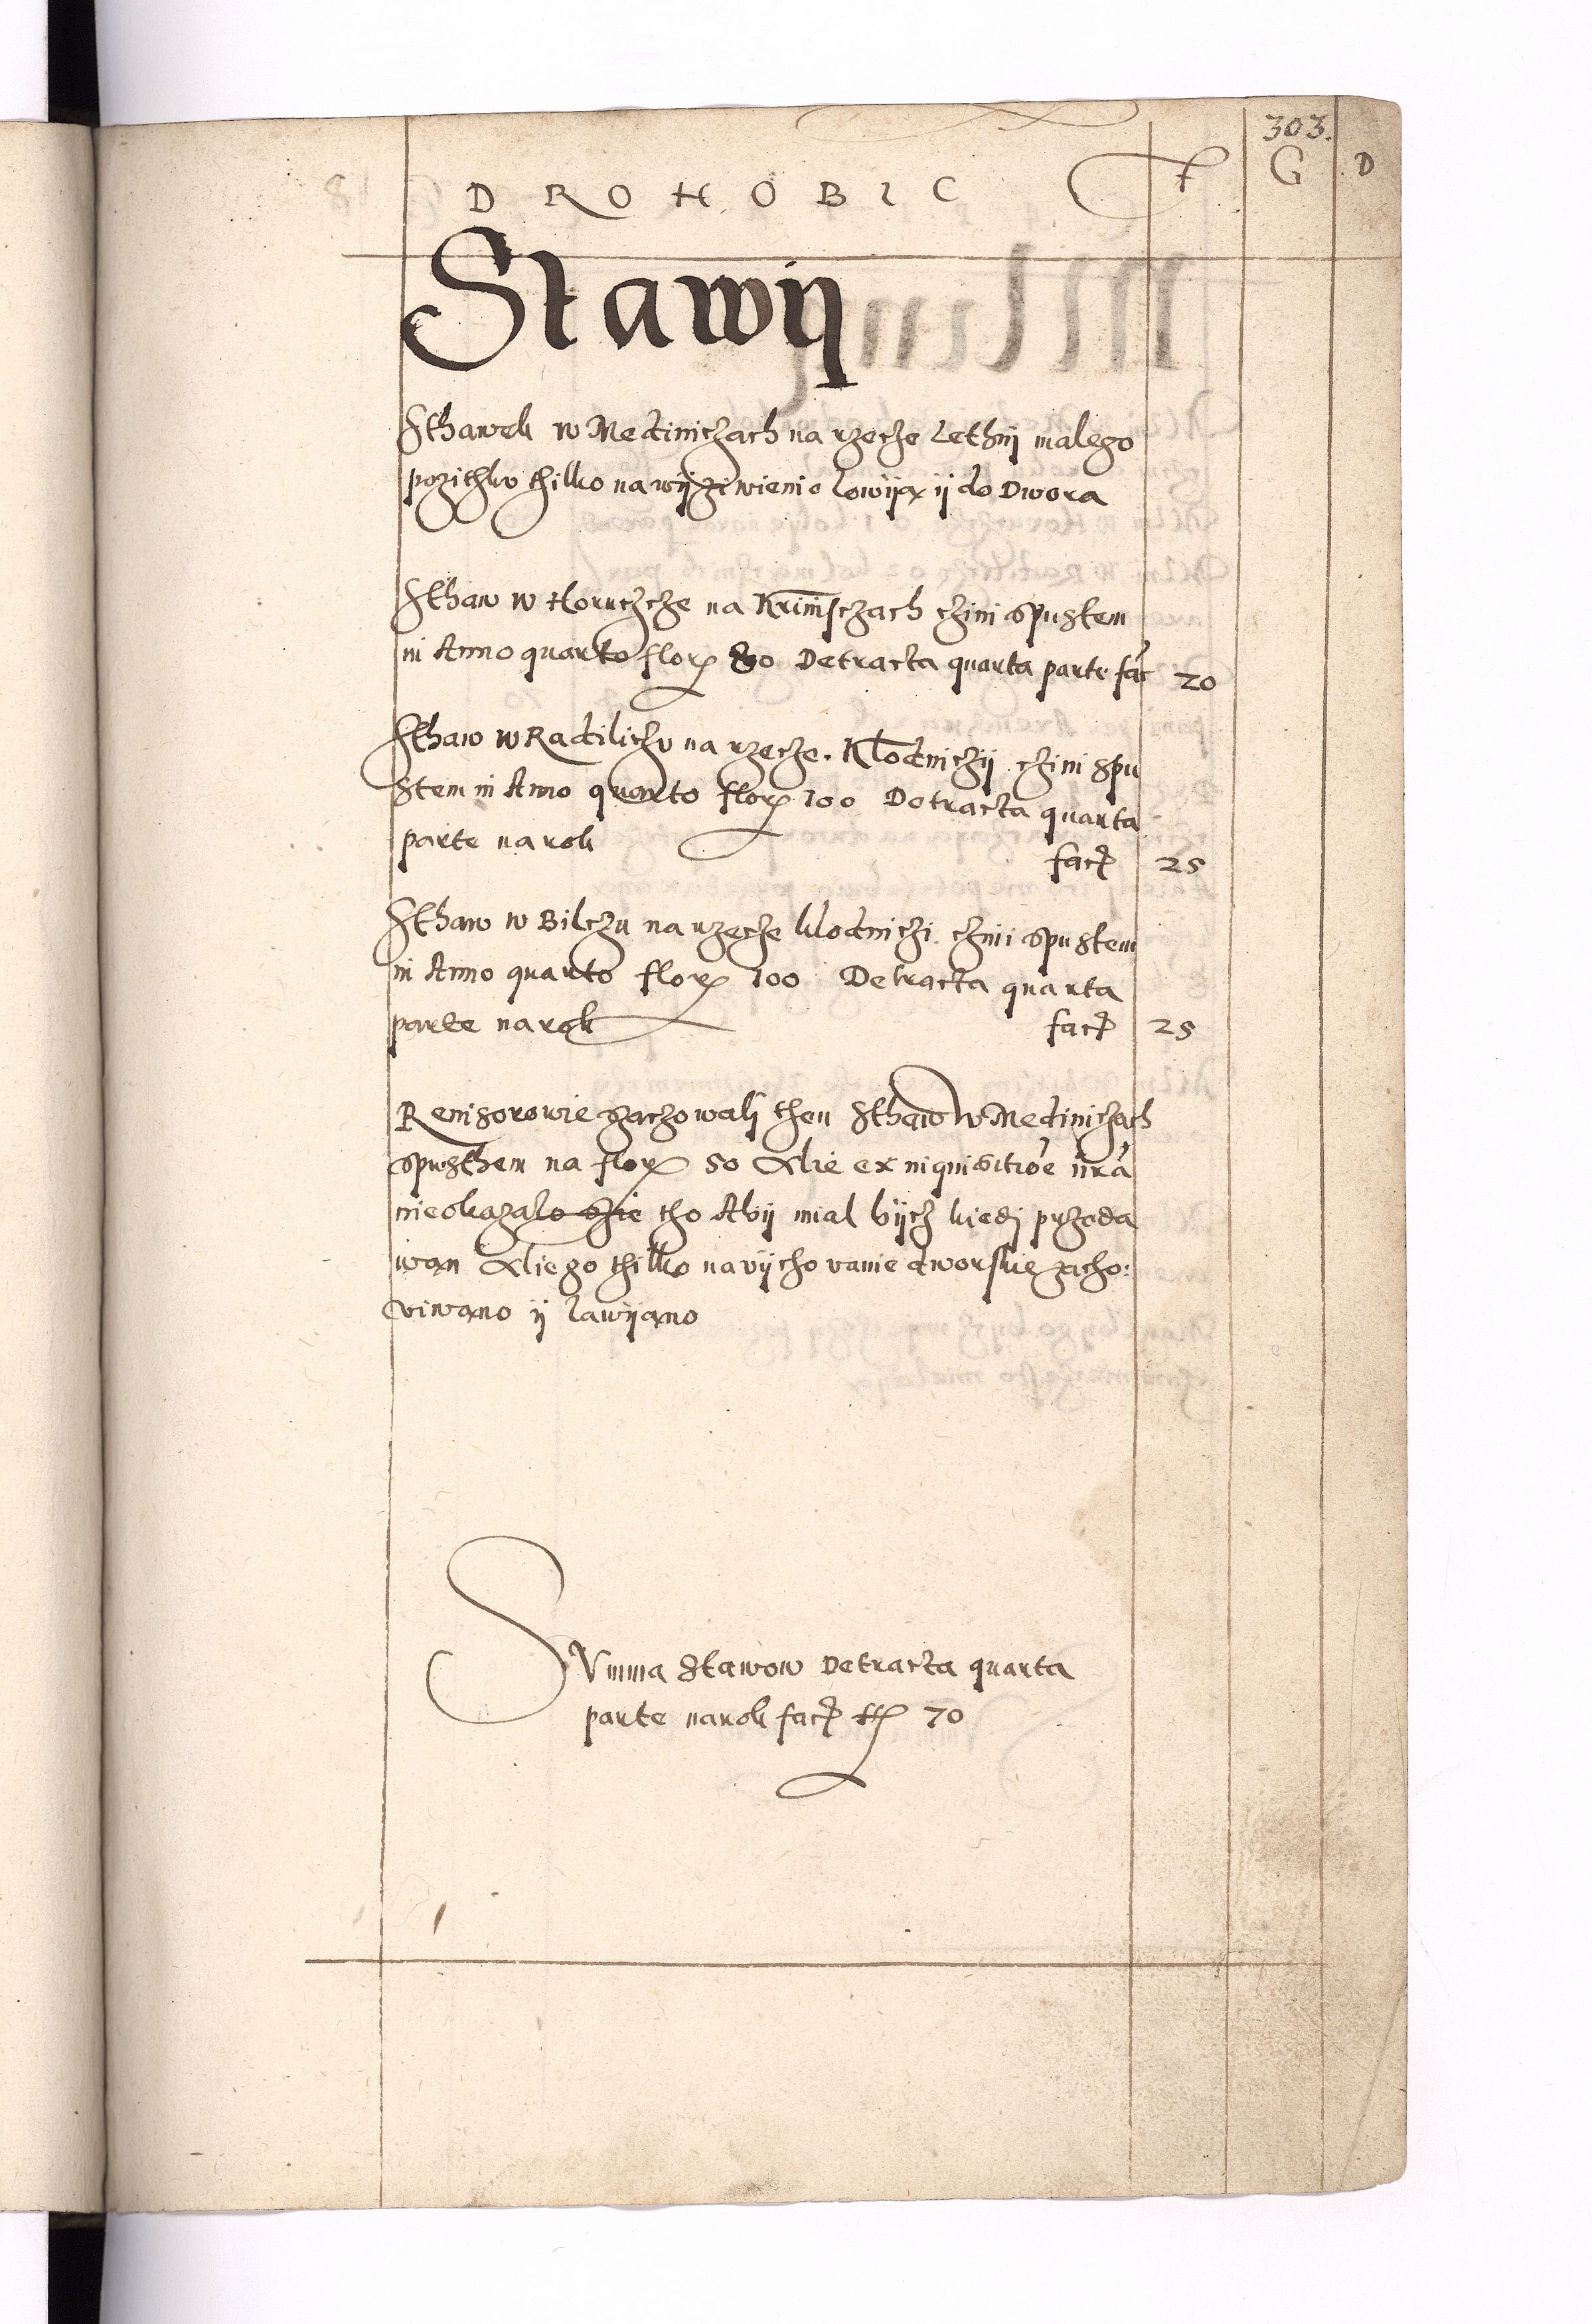 303.
DROHOBIC f G D
Stawij
Sthawek w Mediniczach na rzecze Lethnij malego
pozithku thilko na wijziwienie lowiją ij do Dwora
Sthaw w Horuczcze na Krinisczach czini spustem
in Anno quarto flor 80 Detracta quarta parte fac 20
Sthaw w Radiliczu na rzecze Klodniczij czini spu
stem in Anno quarto flor 100 Detracta quarta
parte narok facit 25
Sthaw w Bilczu na rzecze klodniczi czini spustem
in Anno quarto flor 100 Detracta quarta
parte narok facit 25
Revisorowie zachowali then Sthaw w Mediniczach
spusthem na flor 50 Alie ex inquisitioe nra
nieokazalo szie tho Abij mial bijcz kiedj przeda
wan Aliego thilko na vijchovanie dworskie zacho:
viwano ij lawijano
Summa Stawow Detracta quarta
parte narok facit ff 70